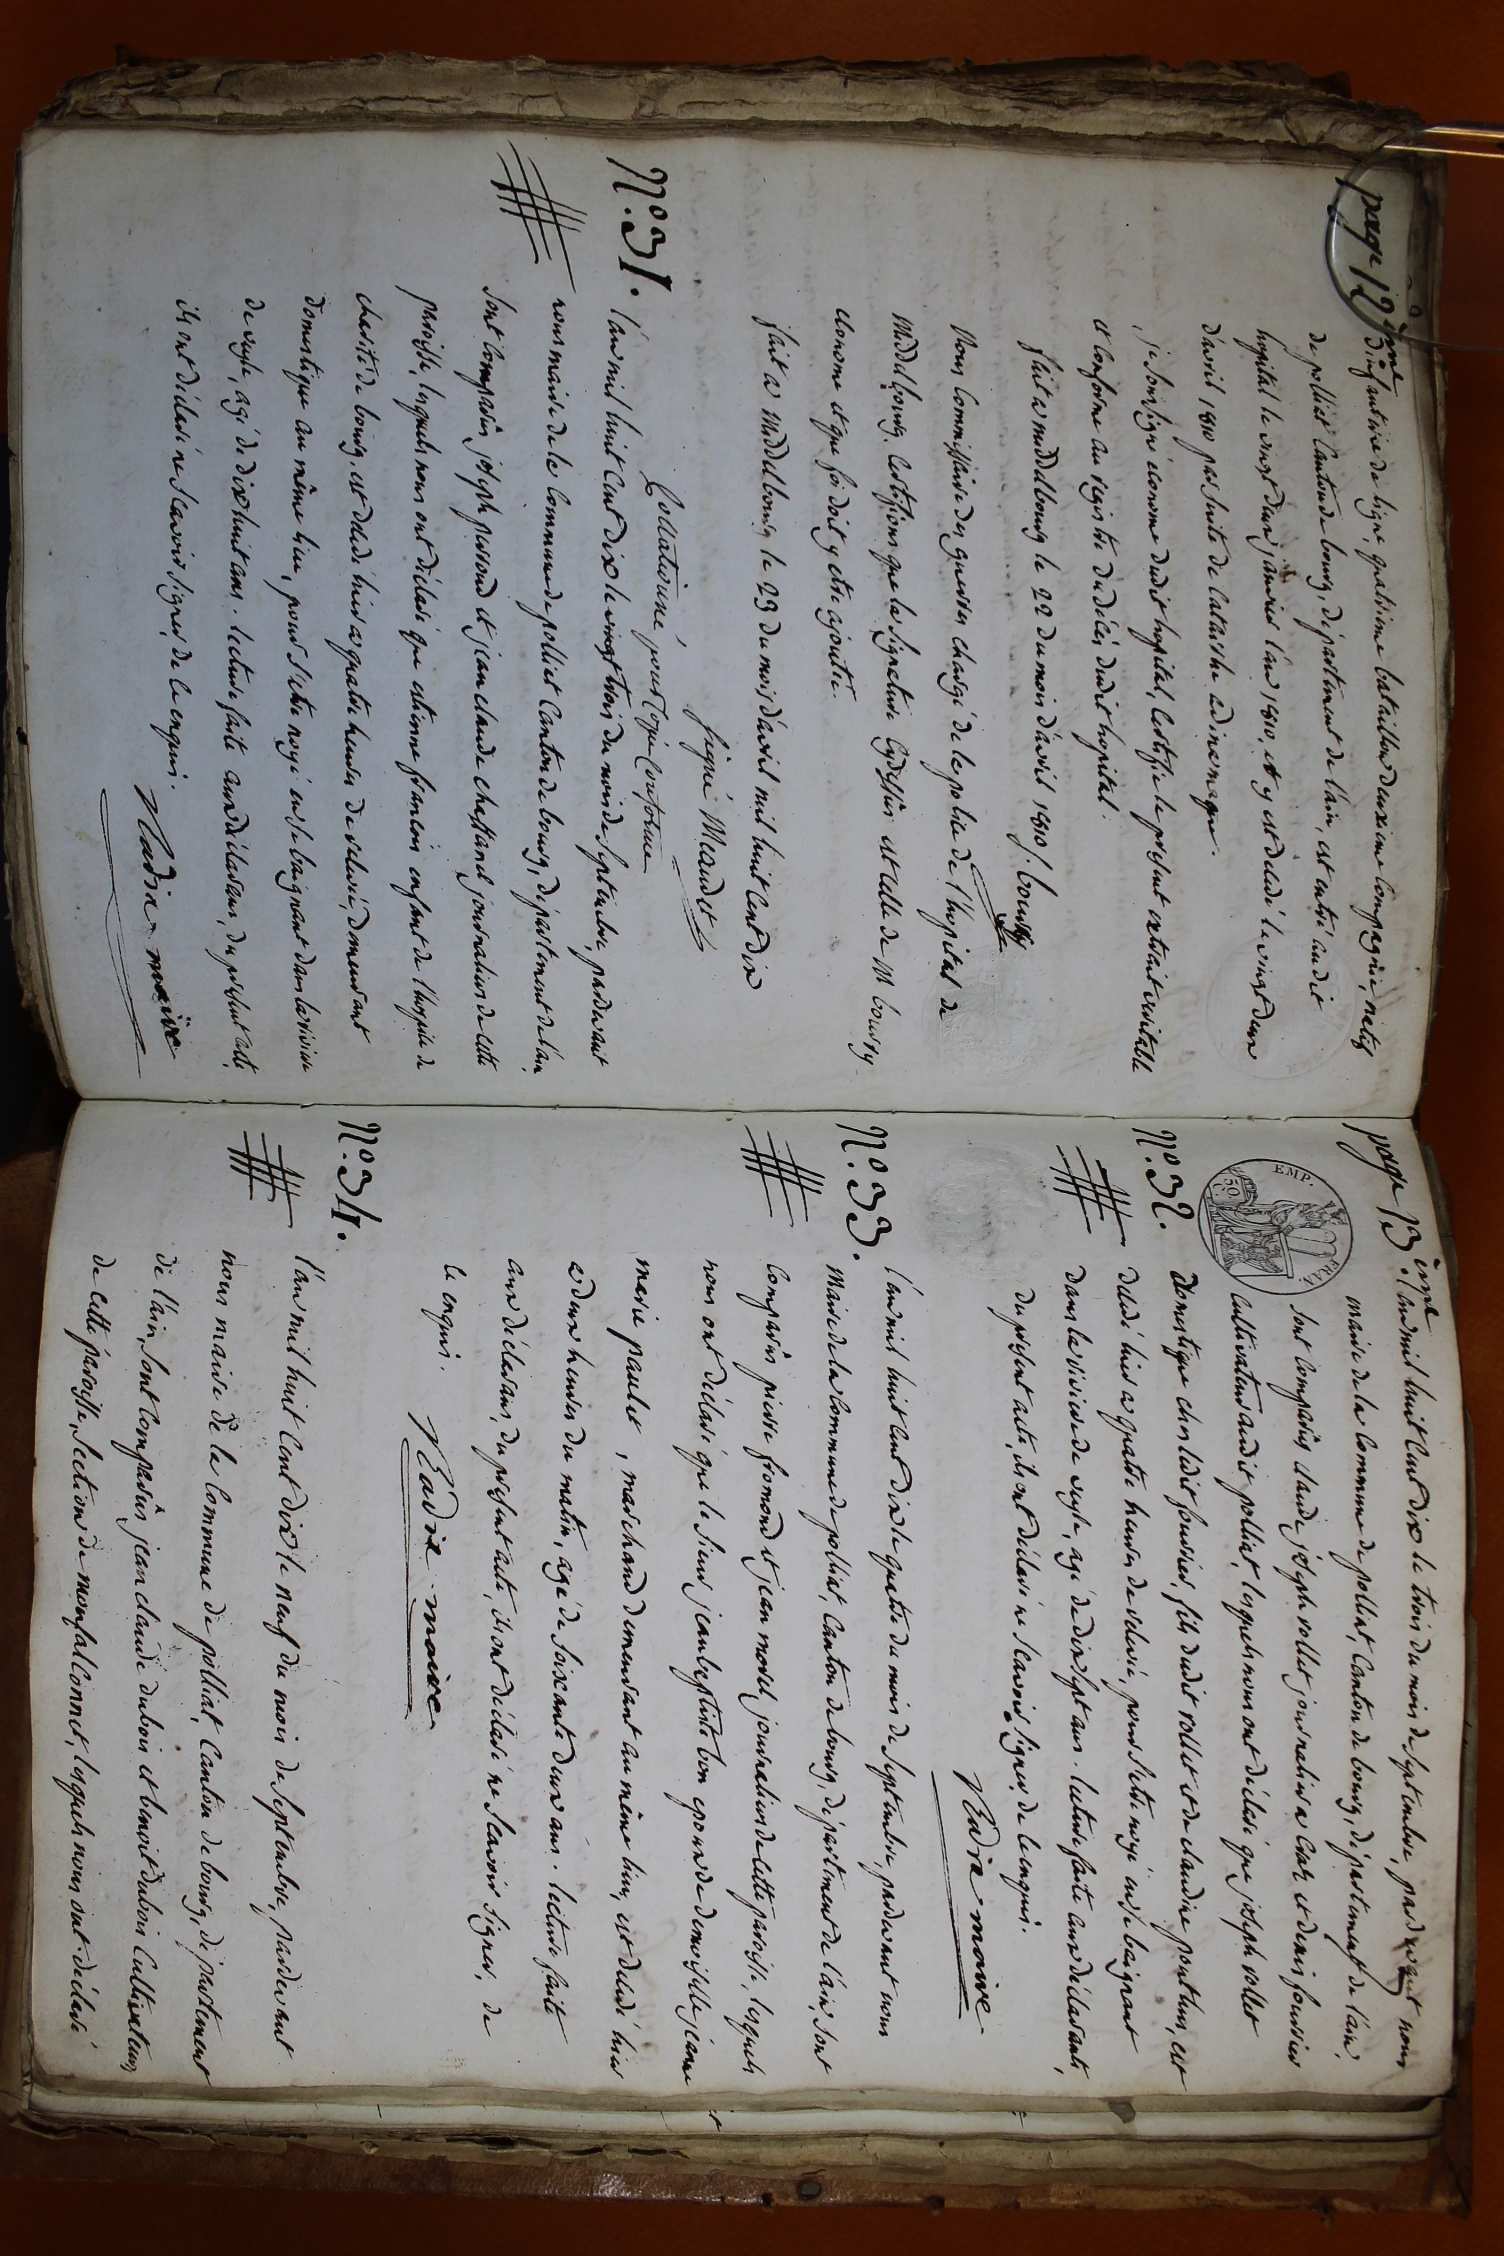 page 12ème
d'infanterie de ligne, quatrieme bataillon deuxieme Compagnie, natif
de polliat Canton de bourg, département de l'ain, est entré audit
hopital le vingt deux janvier l'an 1810, et y est décédé le vingt deux
d'avril 1810 par suite de catarrhe
je soussigné econome dudit hopital, Certifie le présent extrait veritable
et Conforme au registre du décès dudit hopital.
fait a middelbourg le 22 du mois d'avril 1810 /. Coursy
Nous Commissaire des guerres chargé de la police de l'hopital de
Middelbourg, Certifions que la signature Cydessus est celle de M Coursy
econome et que foi doit y etre ajoutée.
fait a Middelbourg le 23 du mois d'avril mil huit Cent dix
signé Meaudet
Collationné pour Copie Conforme
N.º 31.
l'an mil huit Cent dix le vingt trois du mois de septembre, pardevant
nous maire de la Commune de polliat Canton de bourg, département de l'ain,
sont Comparûs joseph perroud et jean claude chaffanel, journaliers de cette
paroisse, lesquels nous ont déclaré que etienne francois enfant de l'hospice de
charité de bourg, est décédé hier a quatre heures de relevée, demeurant
domestique au même lieu, pour s'etre noyé en se baignant dans la riviere
de veyle, agé de dix huit ans. lecture faite aux déclarans, du présent acte,
ils ont déclaré ne scavoir signer de ce enquis.
Radix maire
page 13.ème
l'an mil huit Cent dix le trois du mois de septembre, pardevant nous
maire de la Commune de polliat, Canton de bourg, département de l'ain,
sont Comparûs claude joseph vollet journalier a Craz et denis fourrier
cultivateur audit polliat, lesquels nous ont déclaré que joseph vollet
EMP. FRAN.
50 C.
N.º 32.
domestique chez ledit fourrier, fils dudit vollet et de claudine ponthus, est
décédé hier a quatre heures de relevée, pour s'etre noyé en se baignant
dans la riviere de veyle, agé de dix sept ans. lecture faite aux déclarants,
du présent acte, ils ont déclaré ne scavoir signer de ce enquis.
Radix maire
N.º 33.
l'an mil huit cent dix le quatre du mois de septembre, pardevant nous
Maire de la Commune de polliat, Canton de bourg, département de l'ain, sont
Comparûs pierre fromond et jean morel, journaliers de cette paroisse, lesquels
nous ont déclaré que le sieur jean baptiste bon epoux de demoiselle jeanne
marie paulet, marchand demeurant au même lieu, est décédé hier
a deux heures du matin, agé de soixante deux ans. lecture faite
aux déclarans, du présent acte, ils ont déclaré ne scavoir signer, de
ce enquis.
Radix maire
N.º 34.
l'an mil huit Cent dix le neuf du mois de septembre, pardevant
nous maire de la Commune de polliat, Canton de bourg, département
de l'ain, sont Comparûs jean claude dubois et benoit dubois Cultivateurs
de cette paroisse, section de monfalconnet, lesquels nous ont déclaré